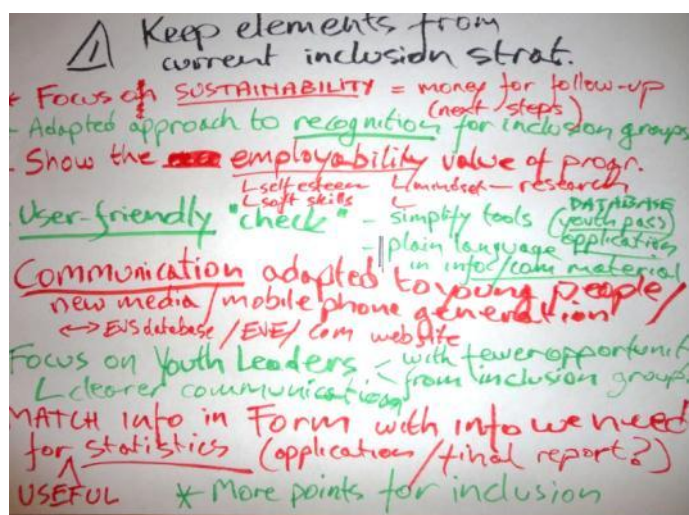 Keep elements from
current inclusion strat.
+ Focus on SUSTAINABILITY = money for follow-up
(next steps)
- Adapted approach to recognition for inclusion groups
- Show the employability value of progr.
self esteem mindset – research
soft skills
DATABASE
- User-friendly "check" - simplify tools (youthpass)
application
- plain language
in info/com material
Communication adapted to young people/
new media/mobile phone generation
<-> EVS database/EVE/com website
Focus on Youth Leaders < with fewer opportunit
from inclusion group
clearer communication
MATCH info in Form with info we need
for statistics (application/final report?)
USEFUL * More points for inclusion